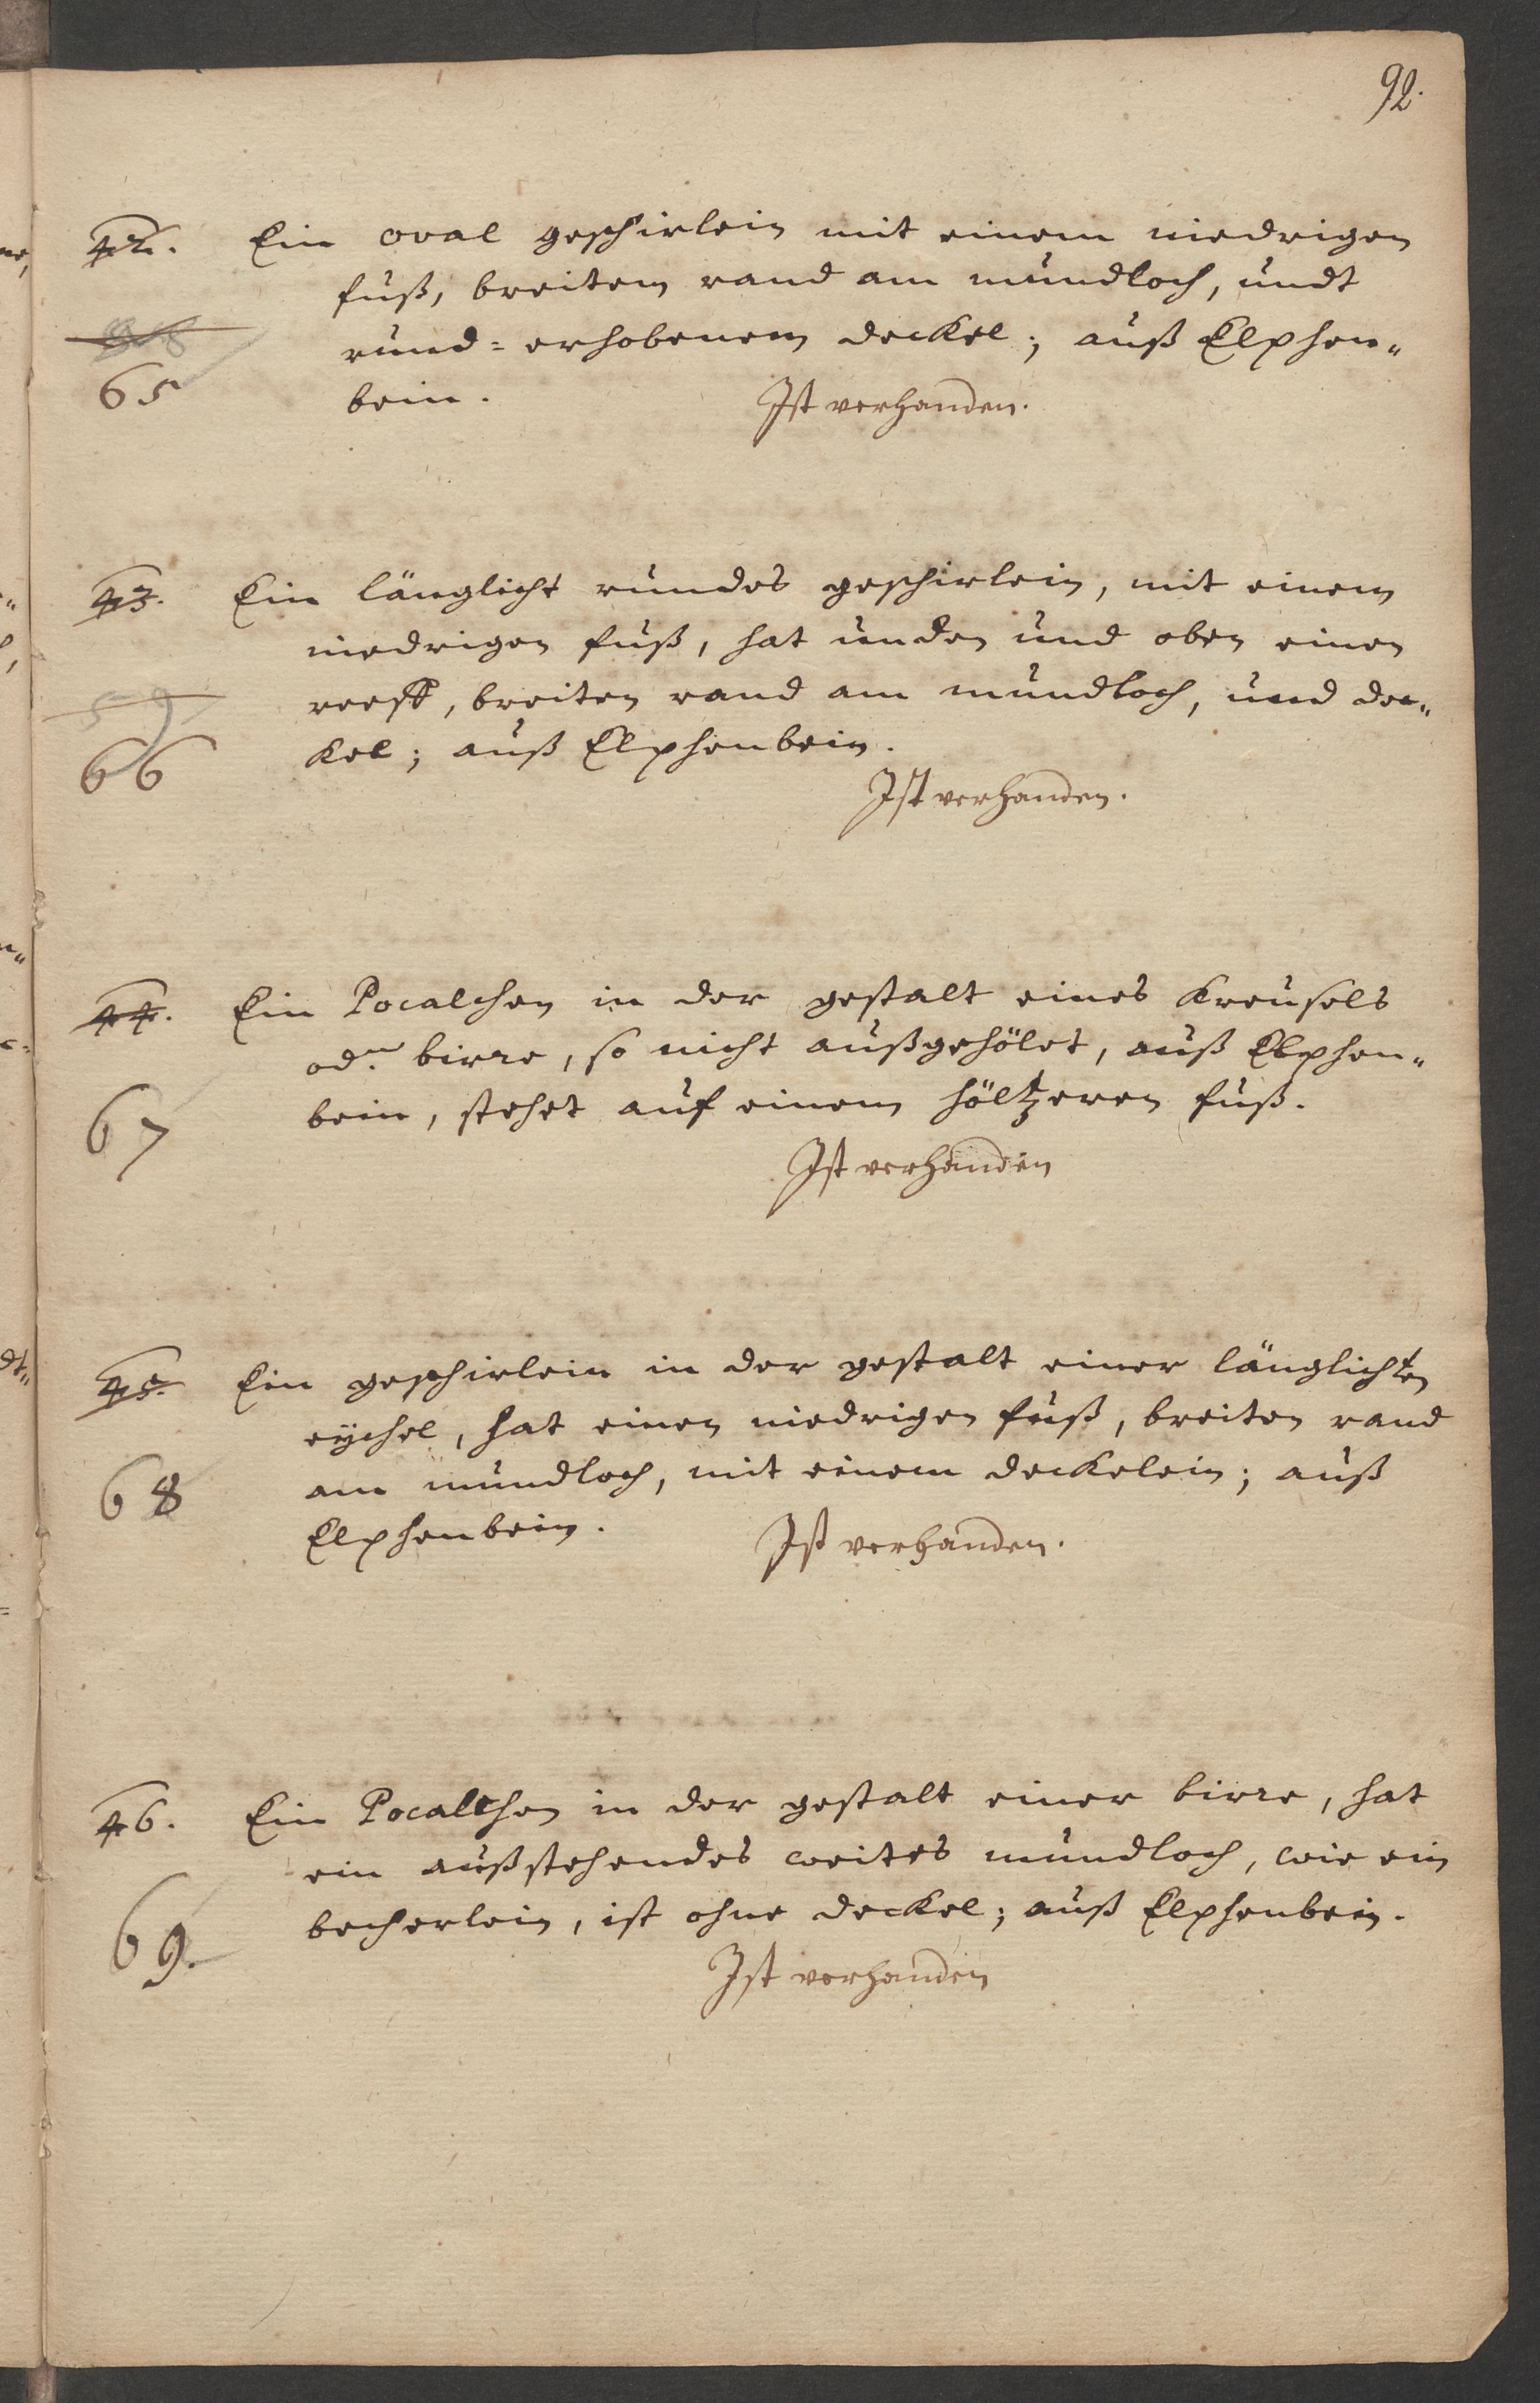 92.
42. Ein oval geschirlein mit einem niedrigen
fuß, breitem rand am mundloch, undt
rund=erhobenem deckel; auß Elphen„
65 bein. Ist verhanden.
43. Ein länglicht rundes geschirlein, mit einem
niedrigen fuß, hat unden und oben einen
59 reeff, breiten rand am mundloch, und dec„
66 kel; auß Elphenbein.
Ist verhanden.
44. Ein Pocalchen in der gestalt eines Kreusels
od. birre, so nicht außgehölet, auß Elphen„
67 bein, stehet auf einem höltzeren fuß.
Ist verhanden
45. Ein geschirlein in der gestalt einer länglichten
eychel, hat einen niedrigen fuß, breiten rand
68 am mundloch, mit einem deckelein; auß
Elphenbein. Ist verhanden.
46. Ein Pocalchen in der gestalt einer birre, hat
ein außstehendes weites mundloch, wie ein
69. becherlein, ist ohne deckel; auß Elphenbein.
Ist verhanden